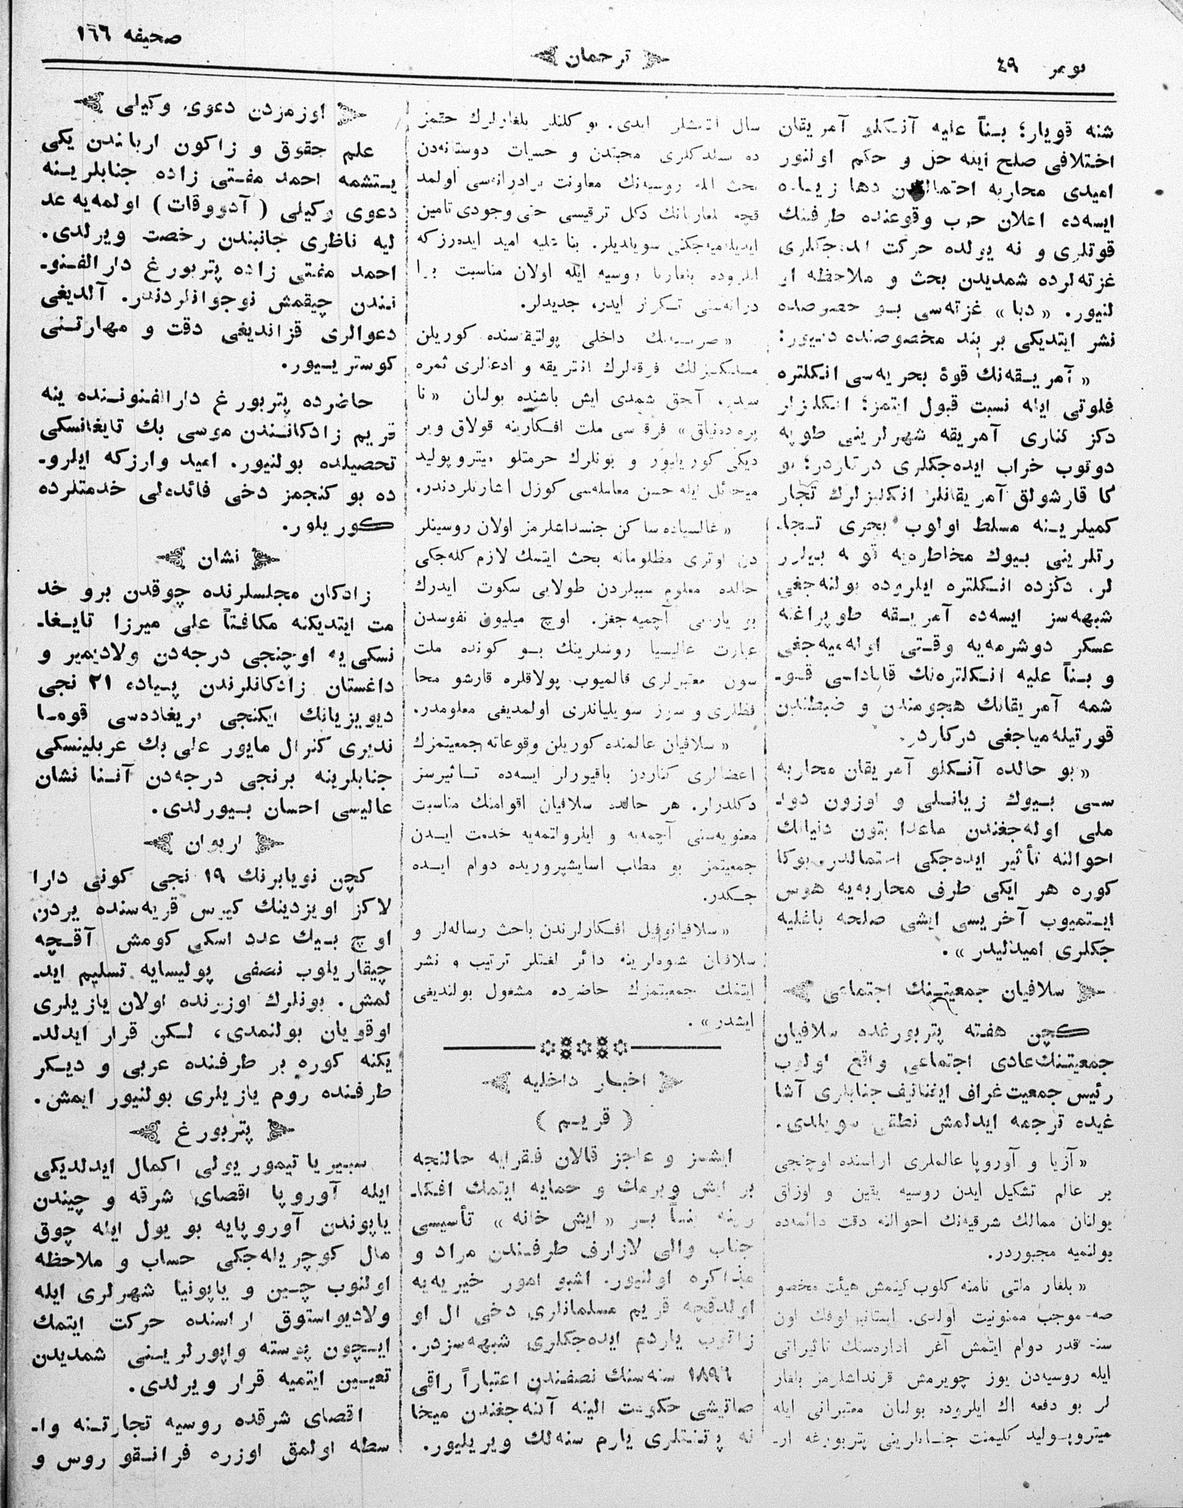 نومر ٤٩
ترجمان
صحیفه ١٦٦
شنه قویار؛ بناً علیه آنكلو آمریقان
اختلافی صلح ایله حل و حكم اولنور
امیدی محاربه دها زیاده
ایسه‌ده اعلان حرب وقوعنده طرفینك
قوتلری و نه یولده حركت ایده‌جكلری
غزته‌لرده شمدیدن بحث و ملاحظه او
لنیور. «دبا» غزته‌سی بو خصوصده
نشر ایتدیكی بر بند مخصوصنده دییور:
«آمریقه‌نك قوۀ بحریه‌سی انكلتره
فلوتی ایله نسبت قبول ایتمز؛ انكلیزلر
دكز كناری آمریقه شهرلرینی طوپه
دوتوب خراب ایده‌جكلری دركاردر؛ بو
كا قارشولق آمریقانلر انكلیزلرك تجار
كمیلرینه مسلط اولوب بحری تجا
رتلرینی بیوك مخاطره‌یه قویه بیلیر
لر. دكزده انكلتره ایلروده بولنه‌جغی
شبهه‌سز ایسه‌ده آمریقه طوپراغنه
عسكر دوشرمه‌یه وقتی اوله‌میه‌جغی
و بناً علیه انكلتره‌نك قاناداسی قو
شمه آمریقانك هجومندن و ضبطندن
قورتیله‌میاجغی دركاردر.
«بو حالده آنكلو آمریقان محاربه
سی بیوك زیانلی و اوزون دوا
ملی اوله‌جغندن ماعدا بتون دنیانك
احوالنه تأثیر ایده‌جكی احتمالدر. بوكا
كوره هر ایكی طرف محاربه‌یه هوس
ایتمیوب آخریسی ایشی صلحه باغلیه
جكلری امیدلیدر».
سلافیان جمعیتنك اجتماعی
كچن هفته پتربورغده سلافیان
جمعیتنك عادی اجتماعی واقع اولوب
رئیس جمعیت غراف ایغناتیف جنابلری آشا
غیده ترجمه ایدلمش نطقی سویلدی.
«آزیا و آوروپا عالملری اراسنده اوچنجی
بر عالم تشكیل ایدن روسیه یقین و اوزاق
بولنان ممالك شرقیه‌نك احوالنه دقت دائمه‌ده
بولنمیه مجبوردر.
«بلغار ملتی نامنه كلوب كیتمش هیئت مخصو
صه موجب ممنونیت اولدی. اون
سنه قدر دوام ایتمش آغر اداره‌سنك تاثیراتی
ایله روسیه‌دن یوز چویرمش قرنداشلرمز بلغار
لر بو دفعه اك ایلروده بولنان معتبرانی ایله
میتروپولید كلیمنت جنابلرینی پتربورغه ار
سال ایتمشلر ایدی. بو كلنلر بلغارلرك حقمز
ده محبتدن و حسیات دوستانه‌دن
بحث ایله روسیه‌نك معاونت برادرانه‌سی اولمد
قچه بلغاریانك دكل ترقیسی حتی وجودی تامین
ایدیله‌میه‌جكنی سویلدیلر. بنا علیه امید ایده‌رز كه
ایلروده بلغاریا روسیه ایله اولان مناسبت برا
درانه‌سنی تكرار ایدر، جدیدلر.
داخلی پولتیقه‌سنده كوریلن
فرقه‌لرك انتریقه و ادعالری ثمره
سیدر. آنجق شمدی ایش باشنده بولنان «نا
فرقه‌سی ملت افكارینه قولاق ویر
دیكی كوریلیور و بونلرك حرمتلو میتروپولید
میخائل ایله حسن معامله‌سی كوزل اشارتلردندر.
«غالسیاده ساكن جنسداشلرمز اولان روسینلر
دن اوتری مظلومانه بحث ایتمك لازم كله‌جكی
حالده معلوم سببلردن طولایی سكوت ایدرك
بو یارەیی آچمیه‌جغز. اوچ میلیون نفوسدن
عبارت غالیسیا روسلرینك بو كونده ملت
سون معتبرلری قالمیوب پولاقلره قارشو محا
فظلری و سرز سویلیانلری اولمدیغی معلومدر.
«سلافیان عالمنده كوریلن وقوعاته جمعیتمزك
اعضالری كناردن باقیورلر ایسه‌ده تاثیرسز
دكلدرلر. هر حالده سلافیان اقوامنك مناسبت
معنویه‌سنی آچمه‌یه و ایلرولتمه‌یه خدمت ایدن
جمعیتمز بو مطلب اسایشپروریده دوام ایده
جكدر.
«سلافیانوفیل افكارلرندن باحث رساله‌لر و
سلافیان شوه‌لرینه دائر لغتلر ترتیب و نشر
ایتمك جمعیتمزك حاضرده مشغول بولندیغی
ایشدر».
اخبار داخلیه
(قریم)
ایشسز و عاجز قالان فقرایه حالنجه
بر ایش ویرمك و حمایه ایتمك افكا
رینه بناً بر «ایش خانه» تأسیسی
جناب والی لازارف طرفندن مراد و
مذاكره اولنیور. اشبو امور خیریه‌یه
اولدقچه قریم مسلمانلری دخی ال او
زاتوب یاردم ایده‌جكلری شبهه‌سزدر.
١٨٩٦ سنه‌سنك نصفندن اعتباراً راقی
صاتیشی حكومت الینه آلنه‌جغندن میخا
نه پتنتلری یارم سنه‌لك ویریلیور.
اوزمزدن دعوی وكیلی
علم حقوق و زاكون اربابندن یكی
یتشمه احمد مفتی زاده جنابلرینه
دعوی وكیلی (آدووقات) اولمه‌یه عد
لیه ناظری جانبندن رخصت ویرلدی.
احمد مفتی زاده پتربورغ دارالفنو
نندن چیقمش نوجوانلردندر. آلدیغی
دعوالری قزاندیغی دقت و مهارتنی
كوستریور.
حاضرده پتربورغ دارالفنوننده ینه
قریم زادكانندن موسی بك تایغانسكی
تحصیلده بولنیور. امید وارز كه ایلرو
ده بو كنجمز دخی فائده‌لی خدمتلرده
كوریلور.
نشان
زادكان مجلسلرنده چوقدن برو خد
مت ایتدیكنه مكافتاً علی میرزا تایغا
نسكی‌یه اوچنجی درجه‌دن ولادیمیر و
داغستان زادكانلرندن پیاده ٢١ نجی
دیویزیانك ایكنجی بریغاده‌سی قوما
ندیری كنرال مایور علی بك عربلینسكی
جنابلرینه برنجی درجه‌دن آننا نشان
عالیسی احسان بیورلدی.
اریوان
كچن نویابرنك ١٩ نجی كونی دارا
لاكز اویزدینك كیوس قریه‌سنده یردن
اوچ بیك عدد اسكی كومش آقچه
چیقاریلوب نصفی پولیسایه تسلیم اید
لمش. بونلرك اوزرنده اولان یازیلری
اوقویان بولنمدی، لكن قرار ایدلد
یكنه كوره بر طرفنده عربی و دیكر
طرفنده روم یازیلری بولنیور ایمش.
پتربورغ
سبیریا تیمور یولی اكمال ایدلدیكی
ایله آوروپا اقصای شرقه و چیندن
یاپوندن آوروپایه بو یول ایله چوق
مال كوچریله‌جكی حساب و ملاحظه
اولنوب چین و یاپونیا شهرلری ایله
ولادیواستوق اراسنده حركت ایتمك
ایچون پوسته واپورلرینی شمدیدن
تعیین ایتمیه قرار ویرلدی.
اقصای شرقده روسیه تجارتنه وا
سطه اولمق اوزره فرانقو روس و